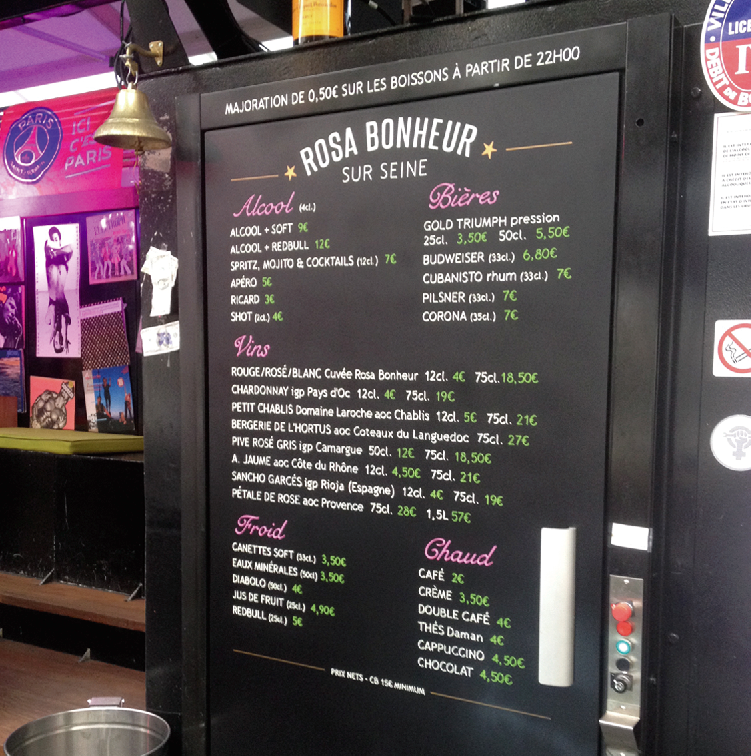 MAJORATION DE 0,50€ SUR LES BOISSONS À PARTIR DE 22H00
ROSA BONHEUR
SUR SEINE
Alcool (4cl.)
ALCOOL + SOFT 9€
ALCOOL + REDBULL 12€
SPRITZ, MOJITO & COCKTAILS (12cl.) 7€
APÉRO 5€
RICARD 3€
SHOT (2cl.) 4€
Bières
GOLD TRIUMPH pression
25cl. 3,50€ 50cl. 5,50€
BUDWEISER (33cl.) 6,80€
CUBANISTO rhum (33cl.) 7€
PILSNER (33cl.) 7€
CORONA (35cl.) 7€
Vins
ROUGE/ROSÉ/BLANC Cuvée Rosa Bonheur 12cl. 4€ 75cl. 18,50€
CHARDONNAY igp Pays d'Oc 12cl. 4€ 75cl. 19€
PETIT CHABLIS Domaine Laroche aoc Chablis 12cl. 5€ 75cl. 21€
BERGERIE DE L'HORTUS aoc Coteaux du Languedoc 75cl. 27€
PIVE ROSÉ GRIS igp Camargue 50cl. 12€ 75cl. 18,50€
A. JAUME aoc Côte du Rhône 12cl. 4,50€ 75cl. 21€
SANCHO GARCÉS igp Rioja (Espagne) 12cl. 4€ 75cl. 19€
PÉTALE DE ROSE aoc Provence 75cl. 28€ 1,5L 57€
Froid
CANETTES SOFT (33cl.) 3,50€
EAUX MINÉRALES (50cl) 3,50€
DIABOLO (50cl.) 4€
JUS DE FRUIT (25cl.) 4,90€
REDBULL (25cl.) 5€
Chaud
CAFÉ 2€
CRÈME 3,50€
DOUBLE CAFÉ 4€
THÉS Daman 4€
CAPPUCCINO 4,50€
CHOCOLAT 4,50€
PRIX NETS - CB 15€ MINIMUM
PARIS
ICI
C'EST
PARIS
LICE
DEBIT DE